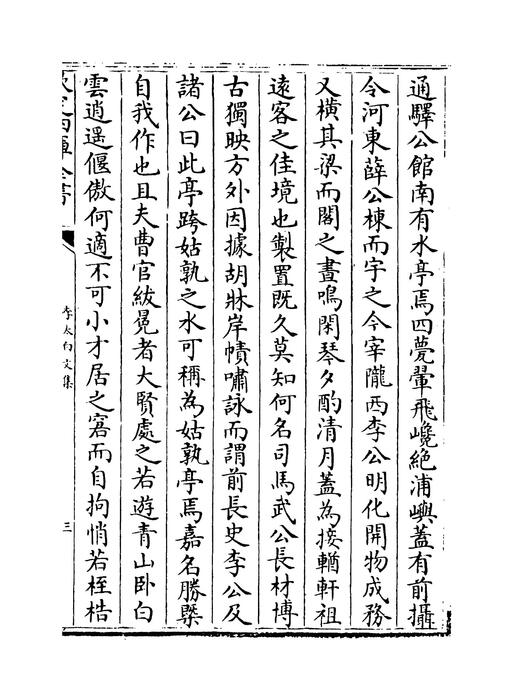 通驛公館南有水亭焉四甍翬飛巉絶浦嶼蓋有前攝
令河東薛公棟而宇之今宰隴西李公明化開物成務
又橫其梁而閣之晝鳴閑琴夕酌清月蓋為接輶軒祖
逺客之佳境也製置既久莫知何名司馬武公長材博
古獨映方外因據胡牀岸幘嘯詠而謂前長史李公及
諸公曰此亭跨姑孰之水可稱為姑孰亭焉嘉名勝槩
自我作也且夫曹官紱冕者大賢處之若遊青山卧白
雲逍遥偃傲何適不可小才居之窘而自拘悄若桎梏
欽定四庫全書
李太白文集
三